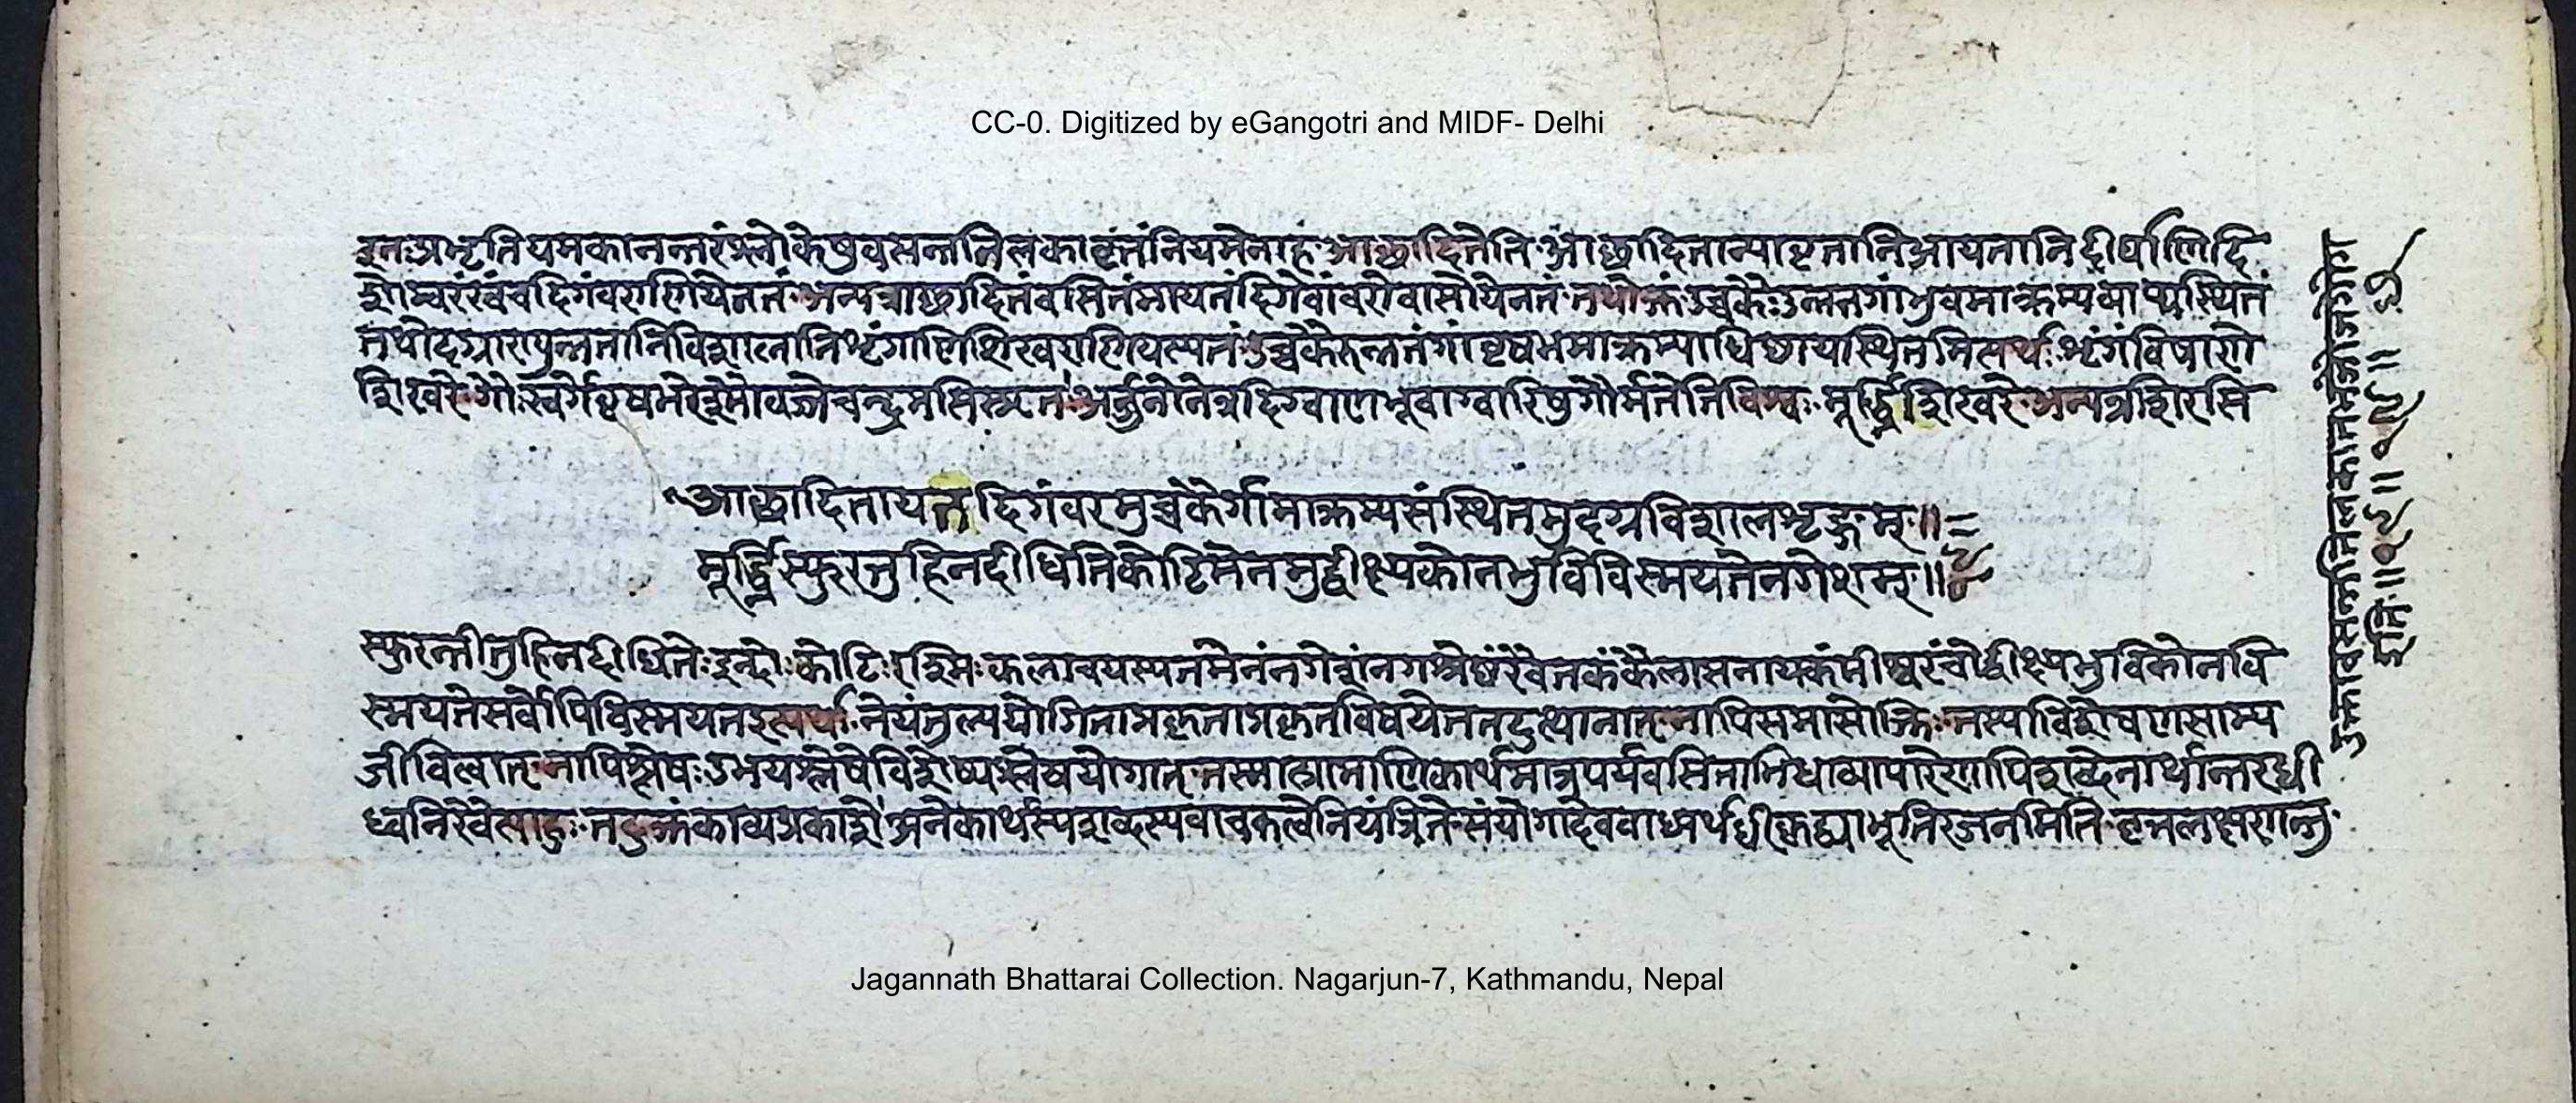 CC-0. Digitized by eGangotri and MIDF- Delhi
इतःप्रभृतियमकानन्तरंश्लोकेषुवसन्ततिलकावृत्तंनियमेनाह आछादितेति आछादितान्यावृतानिआयतानिदीर्घाणिदि
शोम्बरंखंचदिगंवराणियेनतं अन्यत्राछादितंवसितमायतंदिगेवांवरंवासोयेनतं तथोक्तंउच्चकैःउन्नतंगांभुवमाक्रम्यव्याप्यस्थितं
तथोदग्राण्युन्नतानिविशालानिशृंगाणिशिखराणियस्यतं उच्चकैरुन्नतंगांवृषभमाक्रम्याधिष्ठायस्थितमित्यर्थः शृंगंविषाणे
शिखरे गौःस्वर्गेवृषभेरश्मौवज्रेचन्द्रमसिस्मृतः अर्जुनीनेत्रदिग्वाणभूवाग्वारिषुगौर्मतेतिविश्वः मूर्द्ध्निशिखरे अन्यत्रशिरसि
आछादितायतदिगंवरमुच्चकैर्गामाक्रम्यसंस्थितमुदग्रविशालशृङ्गम् ॥
मूर्द्ध्निस्फुरत्तुहिनदीधितिकोटिमेनमुद्वीक्ष्यकोनभुविविस्मयतेनगेशम् ॥
स्फुरन्तीतुहिनदीधितेःइन्दोःकोटिःरश्मिःकलाचयस्यतमेनंनगेशंनगश्रेष्ठंरैवतकंकैलासनायकमीश्वरंचोद्वीक्ष्यभुविकोनवि
स्मयतेसर्वोपिविस्मयतइत्यर्थः नेयंतुल्ययोगिताप्रकृताप्रकृतविषयेतदनुत्थानात् नापिसमासोक्तिः तस्याविशेषणसाम्य
जीवित्वात् नापिश्लेषःउभयश्लेषेविशेष्यश्लेषयोगात् तस्मात्प्रामाणिकार्थमात्रपर्यवसिताभिधाव्यापारेणापिशब्देनार्थान्तरधी
ध्वनिरेवेत्याहुः तदुक्तंकाव्यप्रकाशे अनेकार्थस्यशब्दस्यवाचकत्वेनियंत्रिते संयोगाद्यैरवाच्यार्थधीकृद्व्यापृतिरंजनमिति वृत्तलक्षणन्तु
उक्तावसन्ततिलकातभजाजगौग
इति ॥
Jagannath Bhattarai Collection. Nagarjun-7, Kathmandu, Nepal